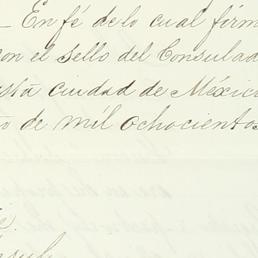 En fé de lo cual firm
con el sello del Consulad
esta ciudad de México
de mil ochocientos